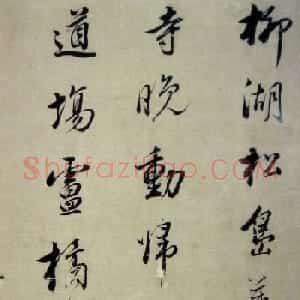 柳湖松島蓮
寺晚動歸
道場盧橘
Shufaziliao.com